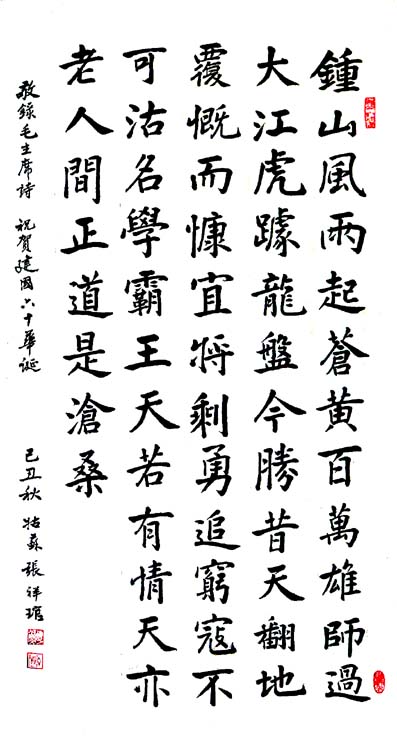 鍾山風雨起蒼黃百萬雄師過
大江虎躆龍盤今勝昔天翻地
覆慨而慷宜將剩勇追窮寇不
可沽名學霸王天若有情天亦
老人間正道是滄桑
敬錄毛主席詩 祝賀建國六十華誕 己丑秋 姑蘇張祥琯